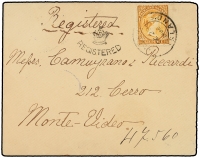 Registered
REGISTERED
Messrs. Camuyrano & Riccardi
212 Cerro
Monte-Video
47560